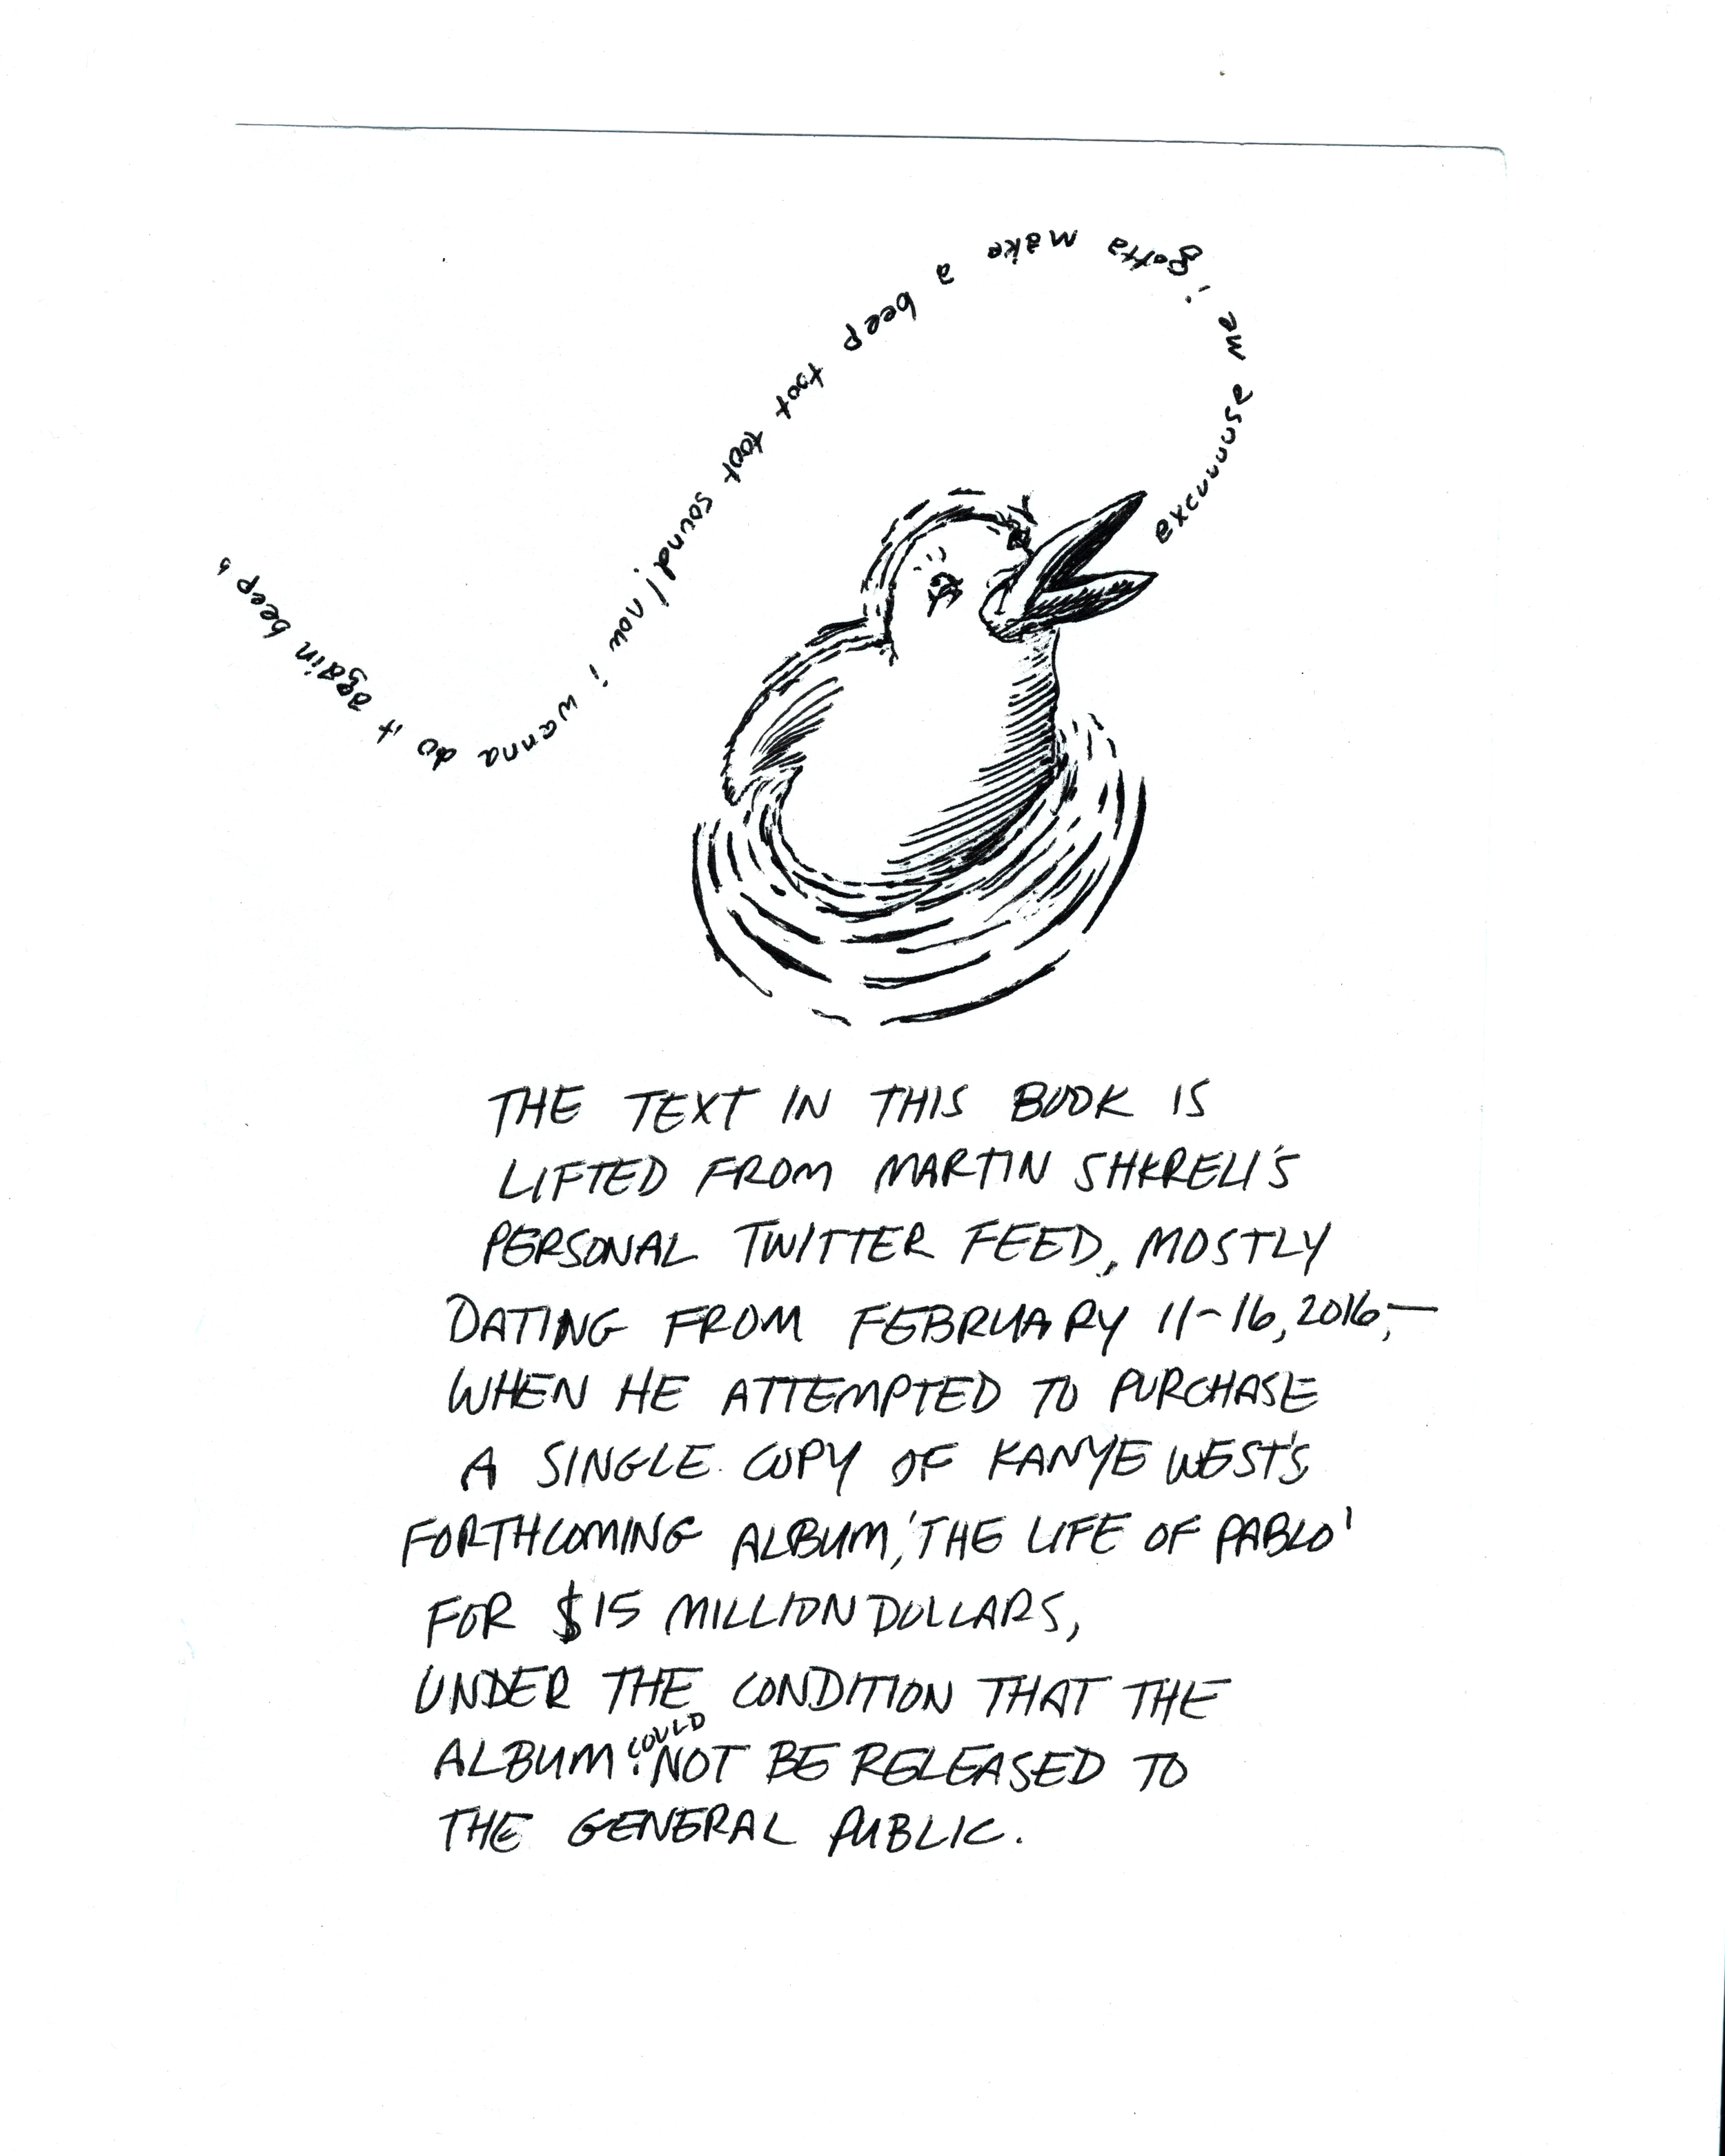 excuuuuse me i gotta make a beep toot toot sound! now i wanna do it again beep b
THE TEXT IN THIS BOOK IS
LIFTED FROM MARTIN SHKRELI'S
PERSONAL TWITTER FEED, MOSTLY
DATING FROM FEBRUARY 11-16, 2016,—
WHEN HE ATTEMPTED TO PURCHASE
A SINGLE COPY OF KANYE WEST'S
FORTHCOMING ALBUM, 'THE LIFE OF PABLO'
FOR $15 MILLION DOLLARS,
UNDER THE CONDITION THAT THE
ALBUM COULD NOT BE RELEASED TO
THE GENERAL PUBLIC.